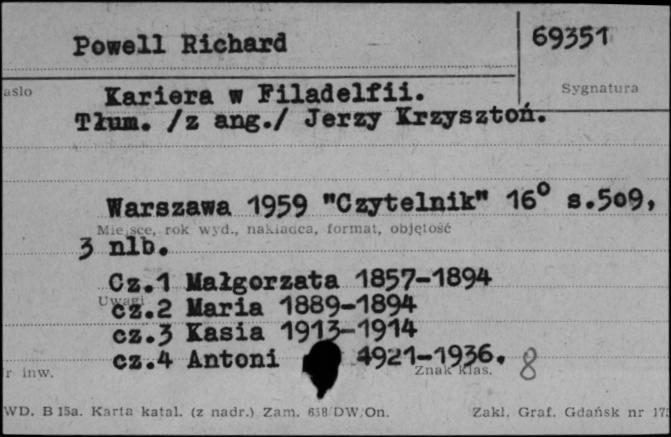 Powell Richard 69351
asło Sygnatura
Kariera w Filadelfii.
Tłum. /z ang./ Jerzy Krzysztoń.
Warszawa 1959 "Czytelnik" 16° s.509,
Miejsce, rok wyd., nakładca, format, objętość
3 nlb.
Cz.1 Małgorzata 1857-1894
Uwagi
cz.2 Maria 1889-1894
cz.3 Kasia 1913-1914
cz.4 Antoni 1921-1936. 8
r inw. Znak klas.
WD. B 15a. Karta katal. (z nadr.) Zam. 658/DW/On. Zakł. Graf. Gdańsk nr 175